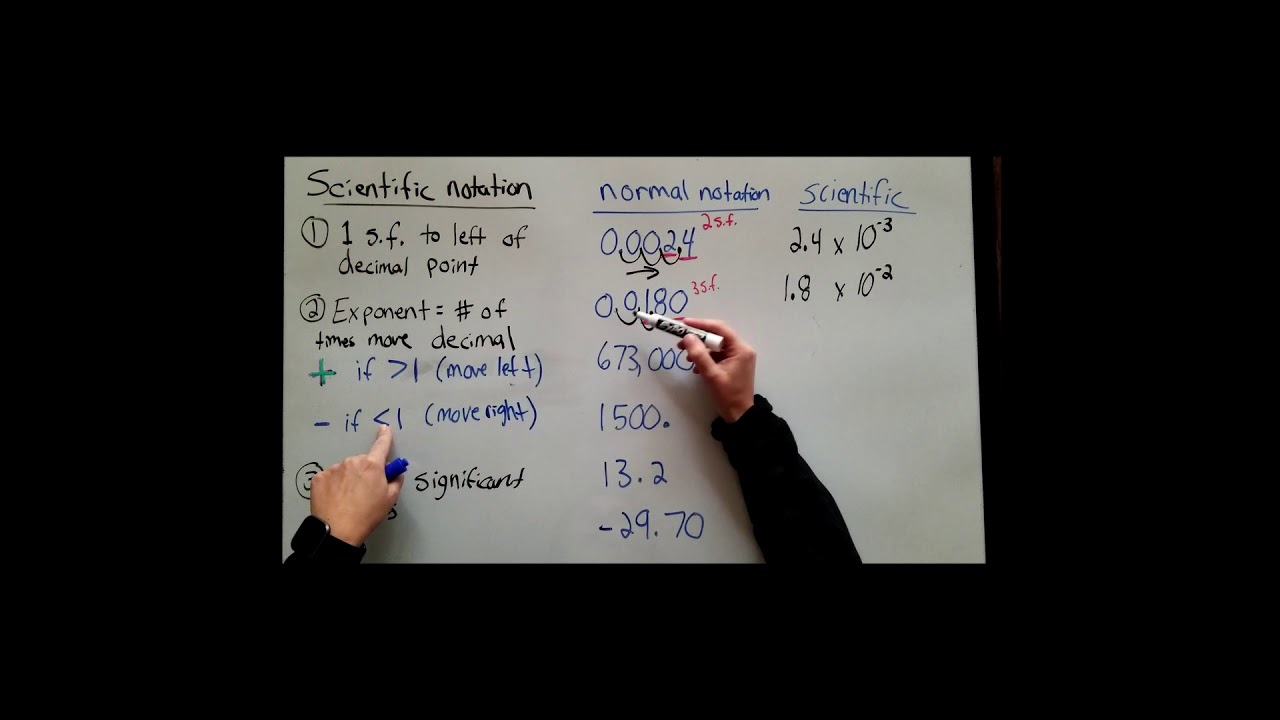 Scientific notation
① 1 s.f. to left of
decimal point
② Exponent = # of
times move decimal
+ if >1 (move left)
- if <1 (move right)
③ significant
normal notation
0.0024 2 s.f.
0.0180 3 s.f.
673,000
1500.
13.2
-29.70
scientific
2.4 x 10⁻³
1.8 x 10⁻²